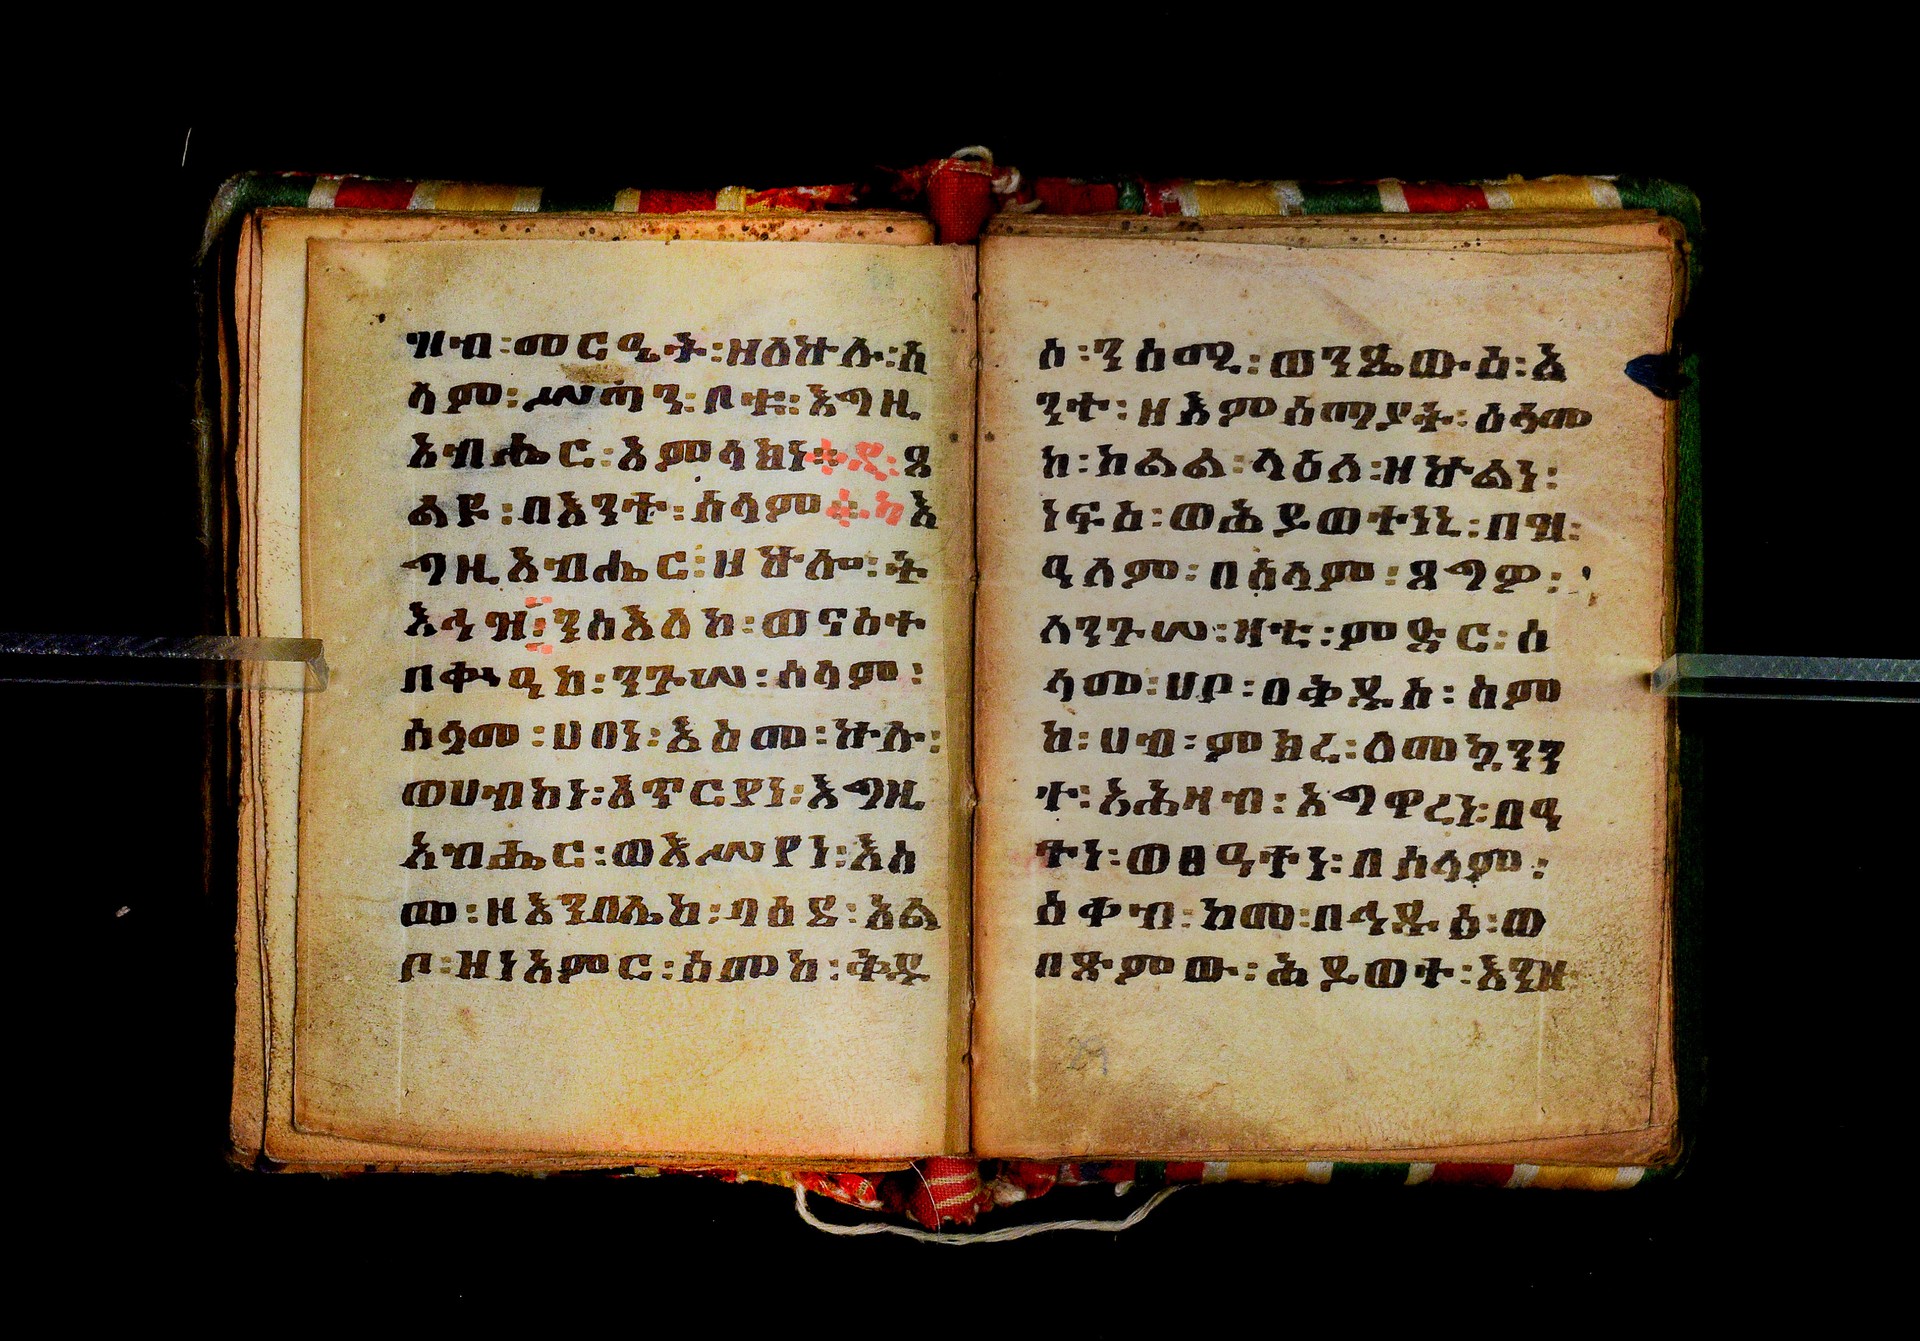 ግብ፡መርዔት፡ዘለኵሉ፡ሰ
ላም፡ሥጣን፡ቦቱ፡እግዚ
አብሔር፡አምላክነ፡ዲ፡ጸ
ልዩ፡በእንተ፡ሰላም፡ካእ
ግዚአብሔር፡ዘኵሎ፡ት
እኅዝ፡ንስእለከ፡ወናስተ
በቍዓከ፡ንጉሠ፡ሰላም፡
ሰላመ፡ሀበነ፡እስመ፡ኵሉ፡
ወሀብከነ፡አጥርየነ፡እግዚ
አብሔር፡ወእሥየነ፡እስ
መ፡ዘእንበሌከ፡ባዕደ፡አል
ቦ፡ዘነአምር፡ስመከ፡ቅዱ
ሰ፡ንሰሚ፡ወንጼውዕ፡አ
ንተ፡ዘእምሰማያት፡ሰላመ
ከ፡ከልል፡ላዕለ፡ዘኵልነ፡
ነፍስ፡ወሕይወተነኒ፡በዝ፡
ዓለም፡በሰላም፡ጸግዎ፡
ለንጉሠ፡ዛቲ፡ምድር፡ሰ
ላመ፡ሀቦ፡በቅዱስ፡ስም
ከ፡ሀብ፡ምክረ፡ለመኳንን
ተ፡አሕዛብ፡አግዋረነ፡በዓ
ትነ፡ወፀዓትነ፡በሰላም፡
ዕቀብ፡ከመ፡በኂሩ፡ዕ፡ወ
በጽምው፡ሕይወተ፡እንዘ